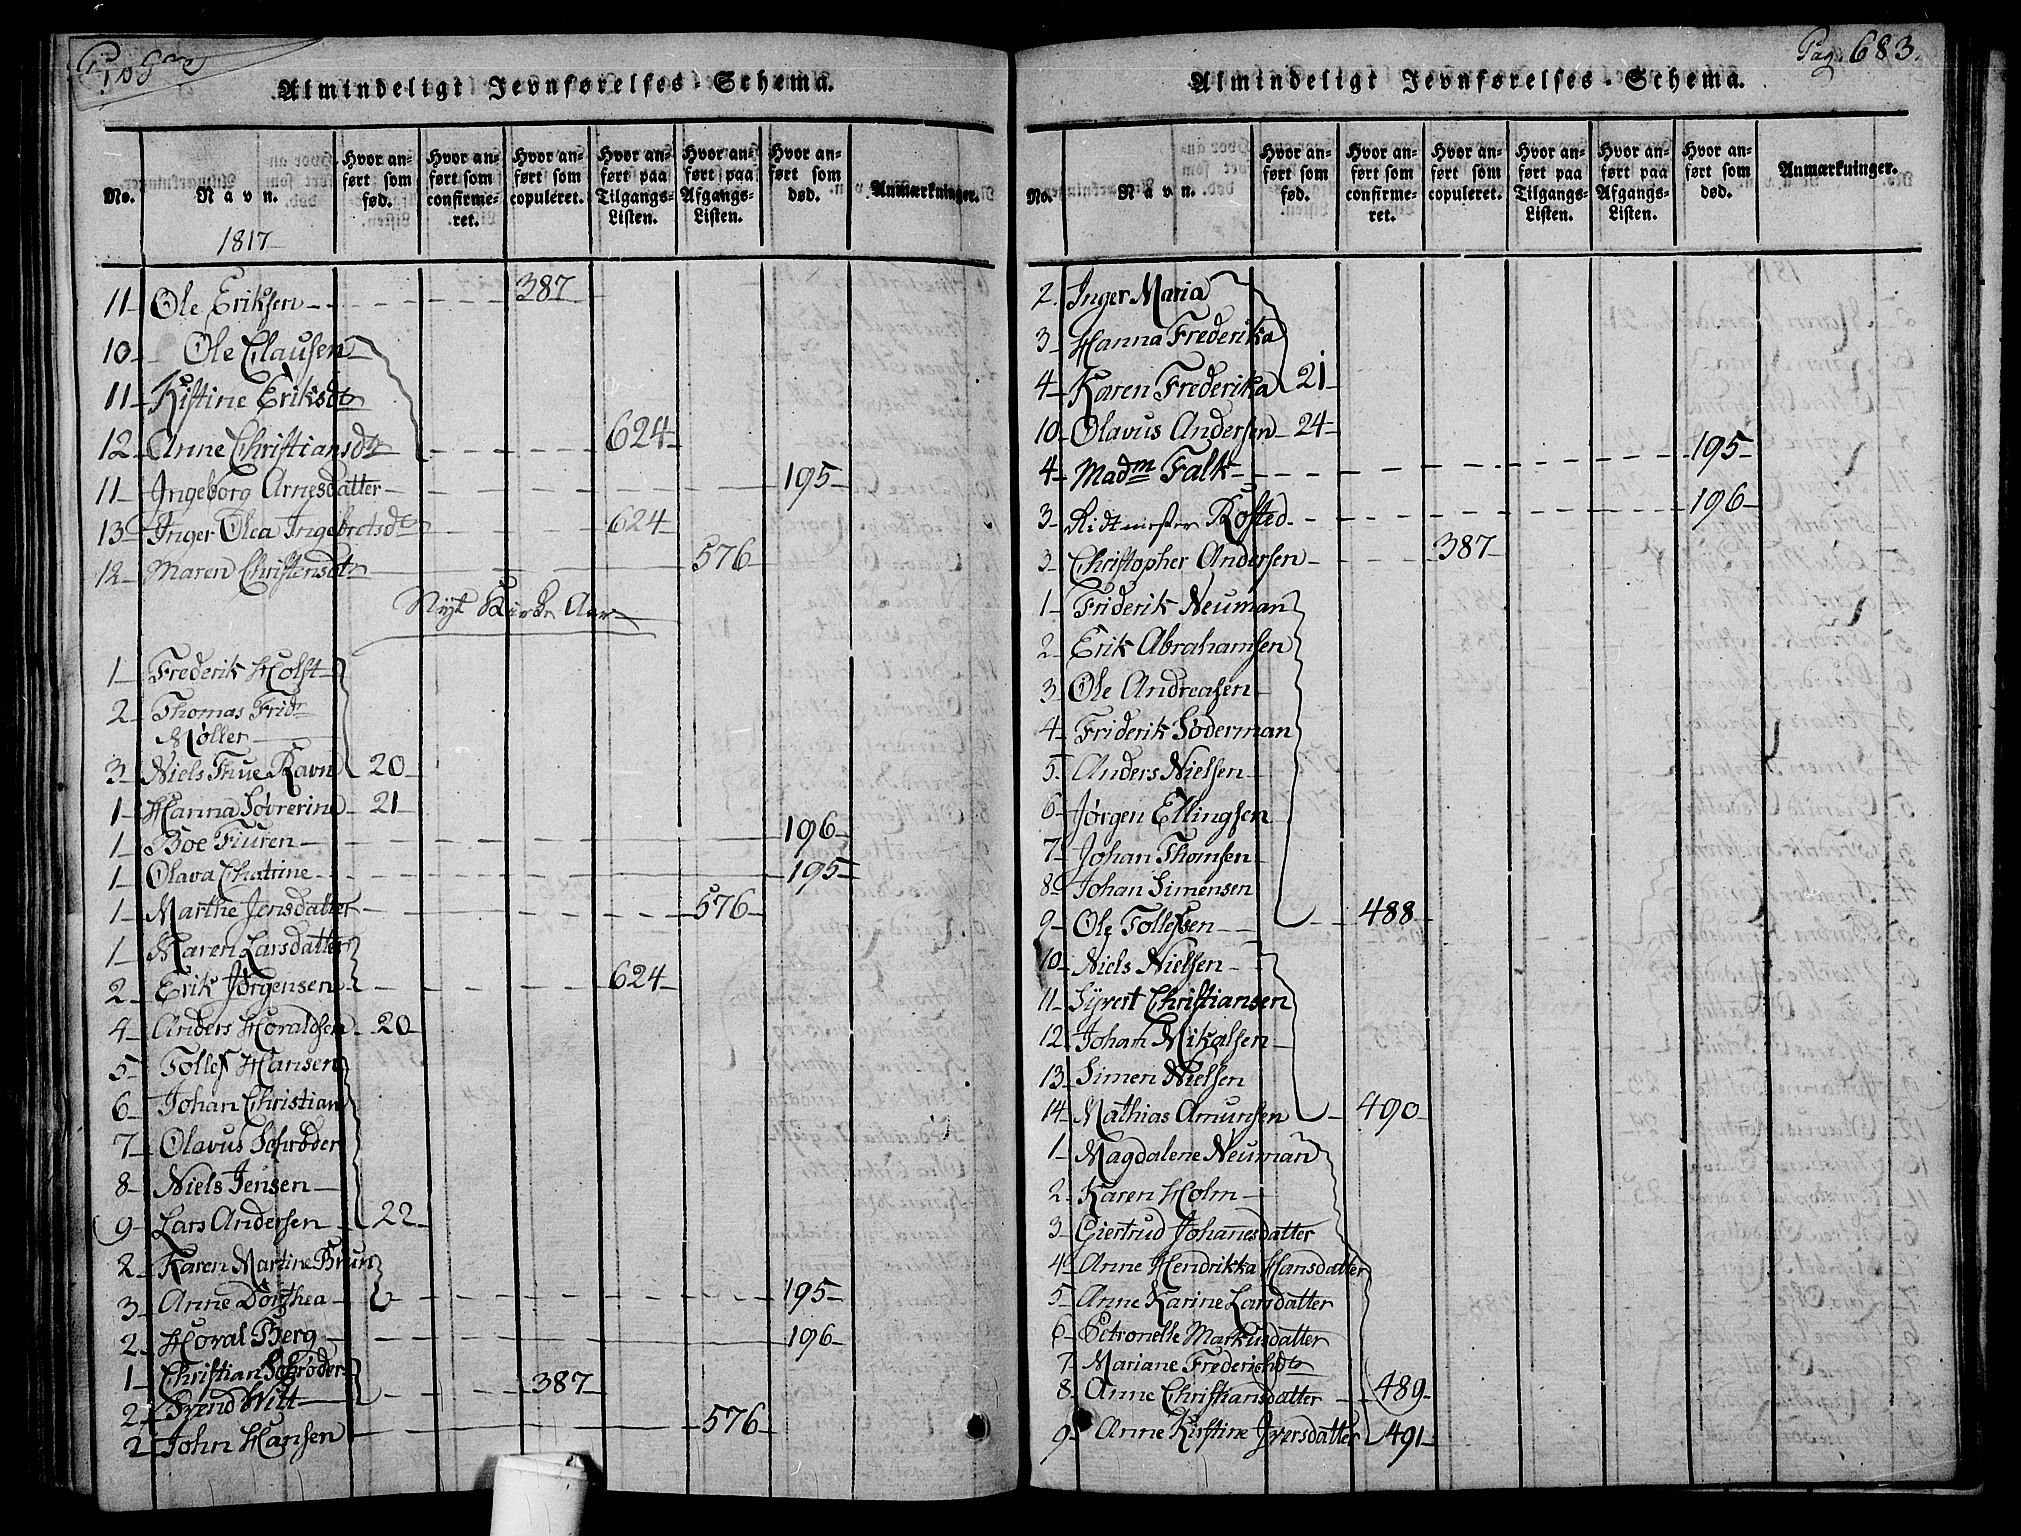 Almindeligt Jevnførelses-Schema.
No.
Navn.
1817
Hvor anført som fød.
Hvor anført som confirmeret.
Hvor anført som copuleret.
Hvor anført paa Tilgangs-Listen.
Hvor anført paa Afgangs-Listen.
Hvor anført som død.
Anmærkninger.
11 Ole Eriksen 387
10 Ole Clausen
11 Kistine Eriksdtr
12 Anne Christiansdtr 624
11 Ingeborg Arnesdatter 195
13 Inger Olea Ingebretsdtr 624
12 Maren Christensdtr 576
Nyt Kirke Aar
1 Frederik Holst
2 Thomas Fridr
Møller
3 Niels Thue Ravn 20
1 Hanna Søvrerine 21
1 Boe Tiuren 196
1 Olava Chatrine 195
1 Marthe Jensdatter 576
1 Karen Larsdatter
2 Erik Jørgensen 624
4 Anders Horaldsen 20
5 Tollef Hansen
6 Johan Christian
7 Olavus Schrøder
8 Niels Jensen
9 Lars Andersen 22
2 Karen Martine Brun
3 Anne Dorthea 195
2 Horal Berg 196
1 Christian Schrøder
2 Svend Witt 387
2 John Hansen 576
Pag. 683.
Almindeligt Jevnførelses-Schema.
No.
Navn.
Hvor anført som fød.
Hvor anført som confirmeret.
Hvor anført som copuleret.
Hvor anført paa Tilgangs-Listen.
Hvor anført paa Afgangs-Listen.
Hvor anført som død.
Anmærkninger.
2 Inger Maria
3 Hanna Frederika
4 Karen Frederika 21
10 Olavus Andersen 24
4 Madm Falk 195
3 Ridtmester Rosted 196
3 Christopher Andersen 387
1 Friderik Neuman
2 Erik Abrahamsen
3 Ole Andreasen
4 Friderik Søderman
5 Anders Nielsen
6 Jørgen Ellingsen
7 Johan Thomsen
8 Johan Simensen
9 Ole Tollefsen 488
10 Niels Nielsen
11 Syvert Christiansen
12 Johan Mikalsen
13 Simen Nielsen
14 Mathias Amunsen 490
1 Magdalene Neuman
2 Karen Holm
3 Giertrud Johannesdatter
4 Anne Hendrikka Hansdatter
5 Anne Karine Larsdatter
6 Petronelle Markusdatter
7 Mariane Frederichsdtr
8 Anne Christiansdatter 489
9 Anne Kirstine Iversdatter 491